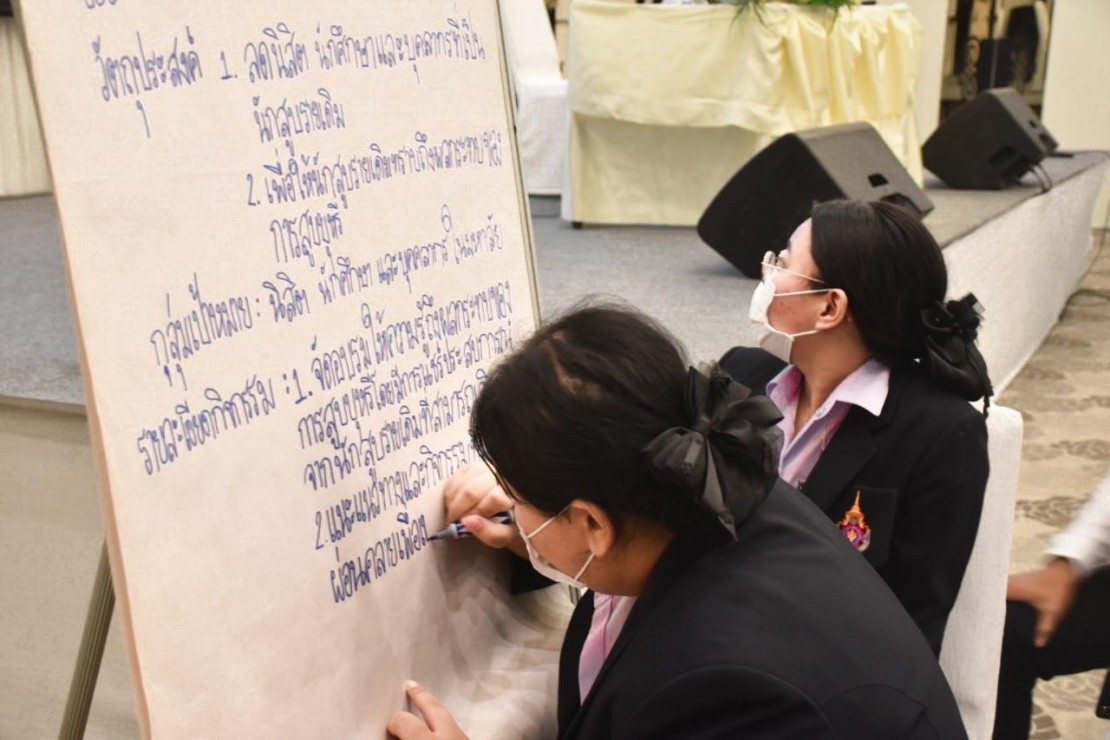 วัตถุประสงค์ 1. ลดนิสิต นักศึกษาและบุคลากรที่เป็น
นักสูบรายเดิม
2. เพื่อให้นักสูบรายเดิมทราบถึงผลกระทบของ
การสูบบุหรี่
กลุ่มเป้าหมาย : นิสิต นักศึกษา และบุคลากร ในมหาลัย
รายละเอียดกิจกรรม : 1. จัดอบรม ให้ความรู้ถึงผลกระทบของ
การสูบบุหรี่โดยมีการแชร์ประสบการณ์
จากนักสูบรายเดิมที่สามารถ
2. แนะแนวทางและกิจกรรม
ผ่อนคลายเพื่อ